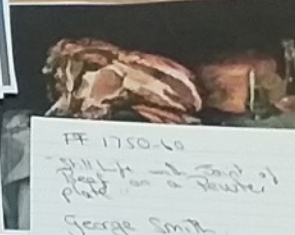 FF 1750-60
Still Life with Joint of
Beef on a Pewter
plate
George Smith